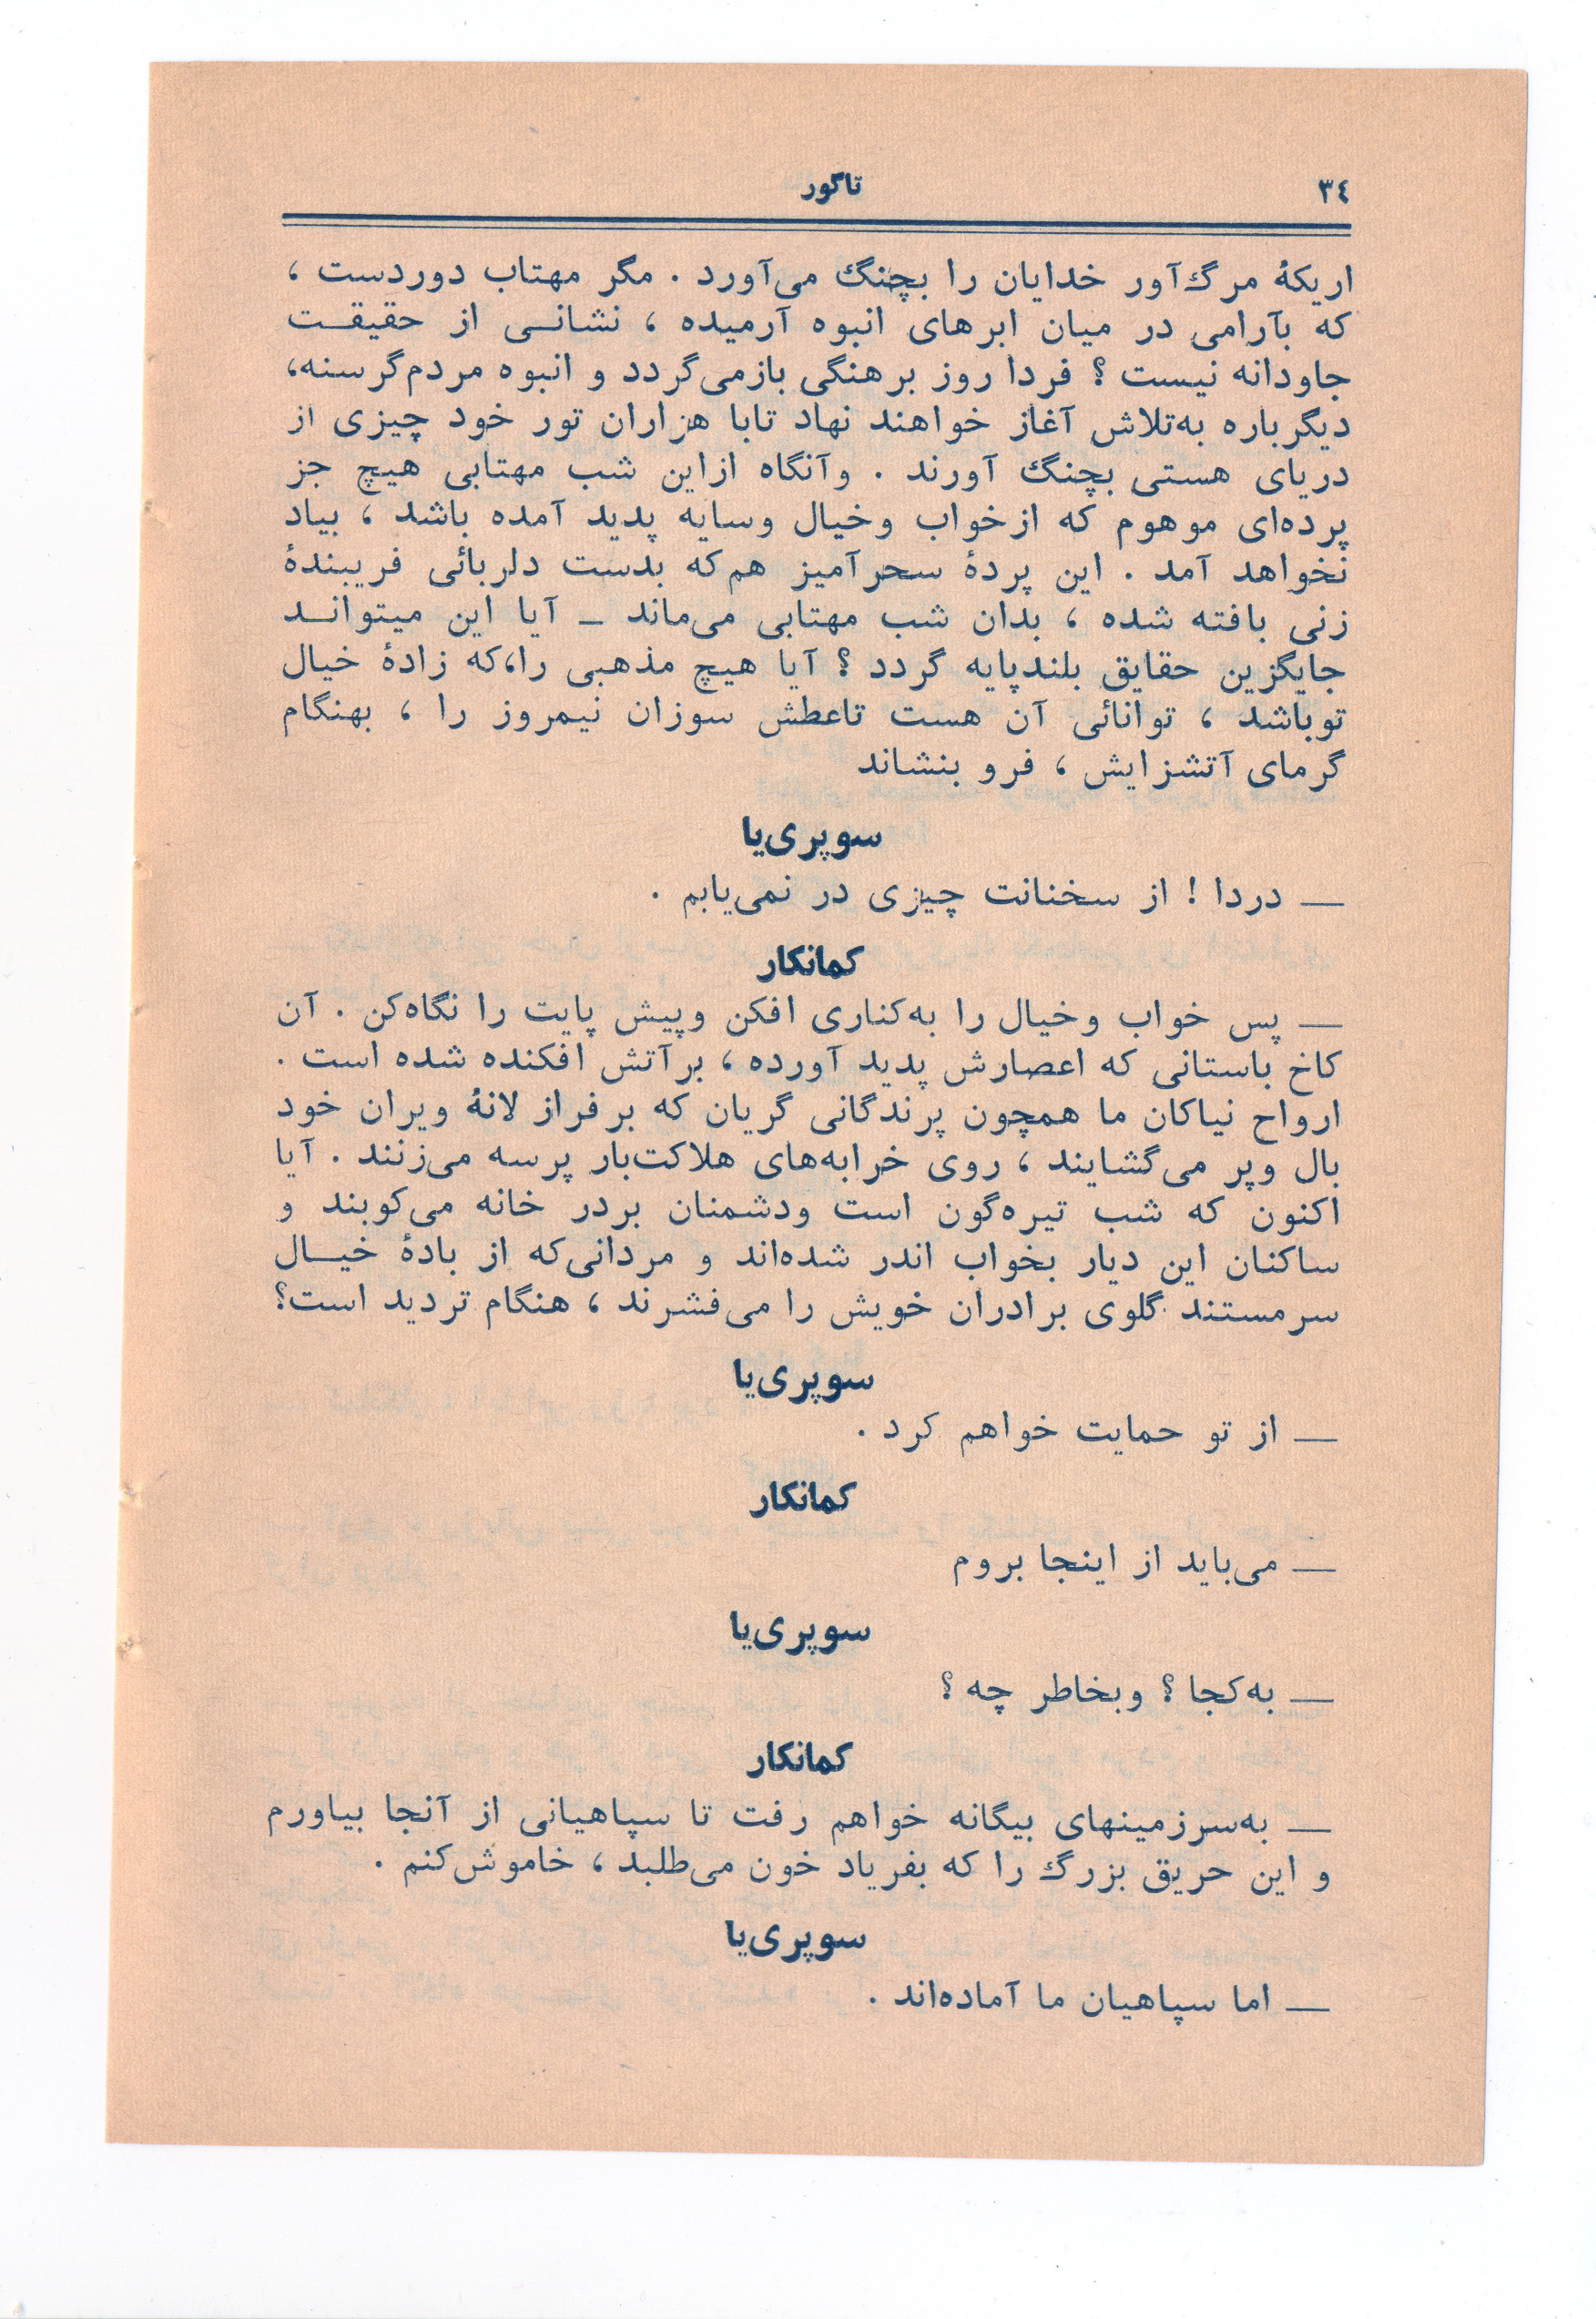 ۳٤
تاگور
اریکهٔ مرگ‌آور خدایان را بچنگ می‌آورد . مگر مهتاب دوردست ،
که بآرامی در میان ابرهای انبوه آرمیده ، نشانی از حقیقت
جاودانه نیست ؟ فردا روز برهنگی بازمی‌گردد و انبوه مردم‌گرسنه،
دیگرباره به‌تلاش آغاز خواهند نهاد تابا هزاران تور خود چیزی از
دریای هستی بچنگ آورند . وآنگاه ازاین شب مهتابی هیچ جز
پرده‌ای موهوم که ازخواب وخیال وسایه پدید آمده باشد ، بیاد
نخواهد آمد . این پردهٔ سحرآمیز هم‌که بدست دلربائی فریبندهٔ
زنی بافته شده ، بدان شب مهتابی می‌ماند ـ آیا این میتواند
جایگزین حقایق بلندپایه گردد ؟ آیا هیچ مذهبی را،که زادهٔ خیال
توباشد ، توانائی آن هست تاعطش سوزان نیمروز را ، بهنگام
گرمای آتشزایش ، فرو بنشاند
سوپری‌یا
— دردا ! از سخنانت چیزی در نمی‌یابم .
کمانکار
— پس خواب وخیال را به‌کناری افکن وپیش پایت را نگاه‌کن . آن
کاخ باستانی که اعصارش پدید آورده ، برآتش افکنده شده است .
ارواح نیاکان ما همچون پرندگانی گریان که برفراز لانهٔ ویران خود
بال وپر می‌گشایند ، روی خرابه‌های هلاکت‌بار پرسه می‌زنند . آیا
اکنون که شب تیره‌گون است ودشمنان بردر خانه می‌کوبند و
ساکنان این دیار بخواب اندر شده‌اند و مردانی‌که از بادهٔ خیال
سرمستند گلوی برادران خویش را می‌فشرند ، هنگام تردید است؟
سوپری‌یا
— از تو حمایت خواهم کرد .
کمانکار
— می‌باید از اینجا بروم
سوپری‌یا
— به‌کجا ؟ وبخاطر چه ؟
کمانکار
— به‌سرزمینهای بیگانه خواهم رفت تا سپاهیانی از آنجا بیاورم
و این حریق بزرگ را که بفریاد خون می‌طلبد ، خاموش‌کنم .
سوپری‌یا
— اما سپاهیان ما آماده‌اند .